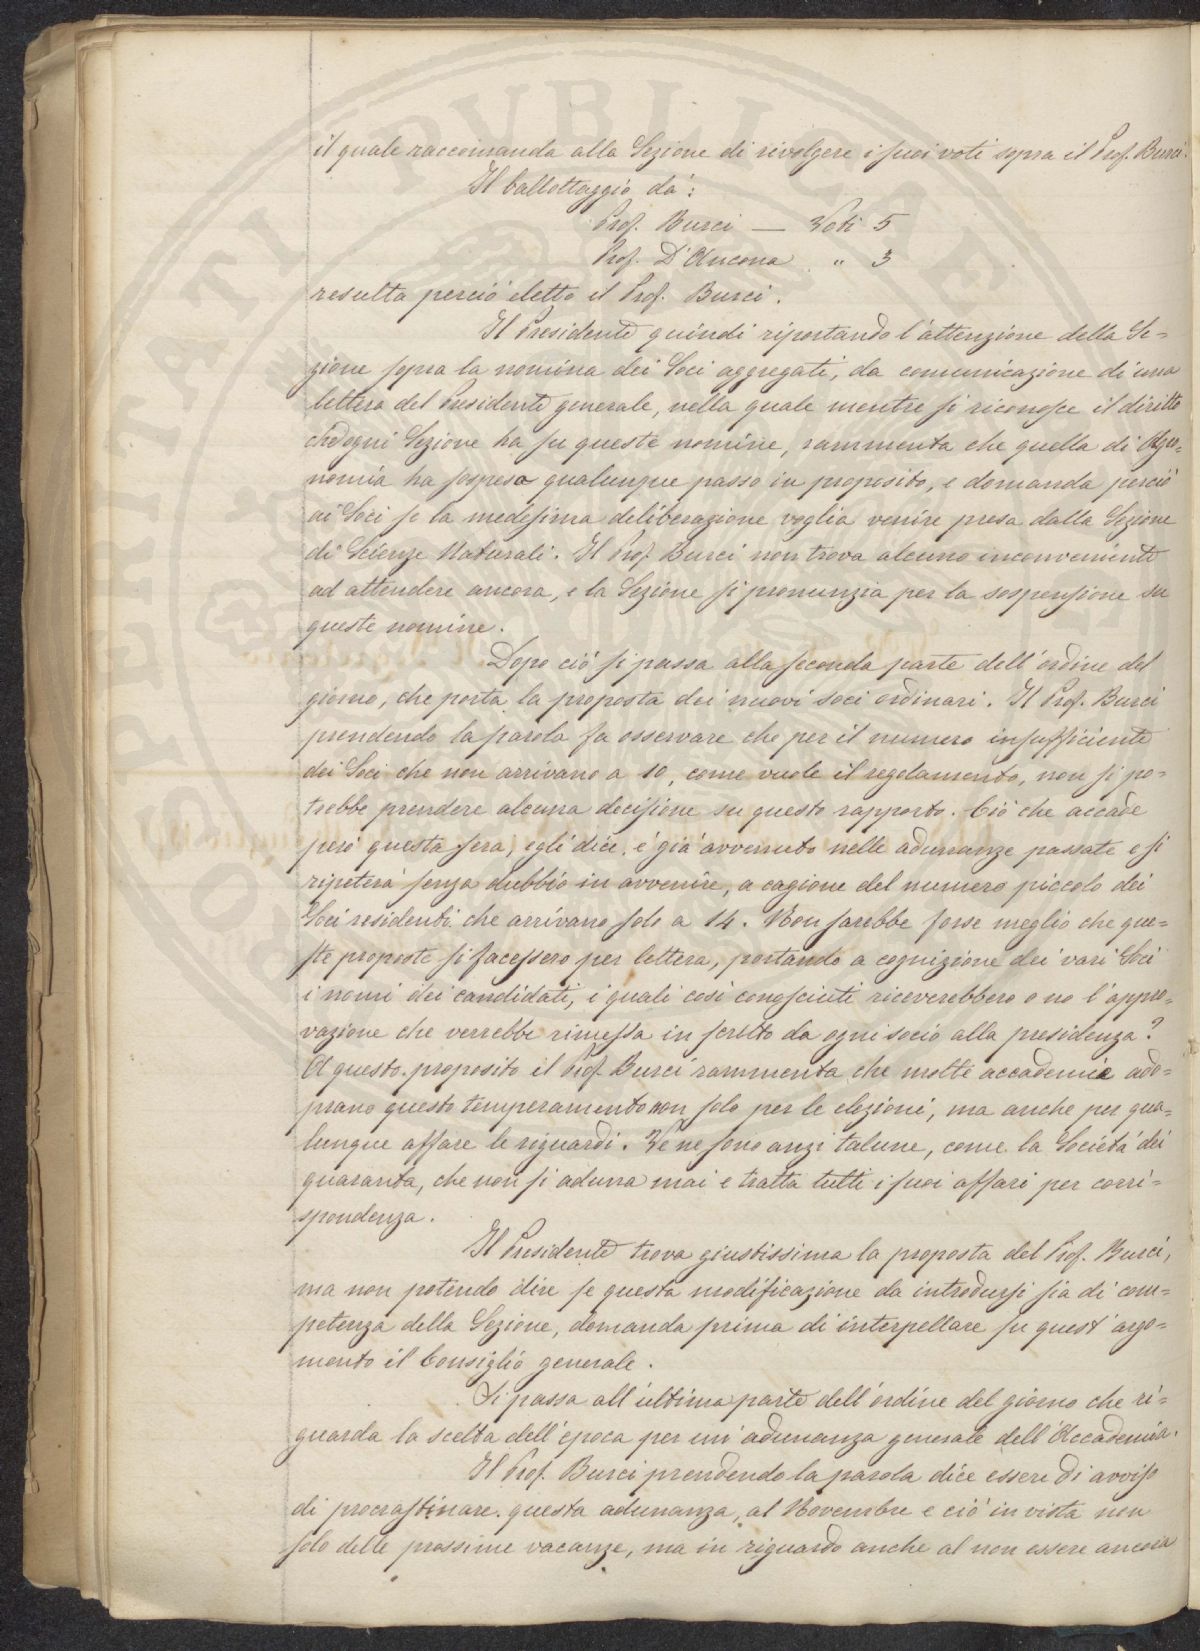 il quale raccomanda alla Sezione di rivolgere i suoi voti sopra il Prof. Burci.
Il ballottaggio dà:
Prof. Burci — Voti 5
Prof. D'Ancona „ 3
resulta perciò eletto il Prof. Burci.
Il Presidente quindi riportando l'attenzione della Se=
zione sopra la nomina dei Soci aggregati, da comunicazione di una
lettera del Presidente generale, nella quale mentre si riconosce il diritto
ch'ogni Sezione ha su queste nomine, rammenta che quella di Agro=
nomia ha sospeso qualunque passo in proposito, e domanda perciò
ai Soci se la medesima deliberazione voglia venire presa dalla Sezione
di Scienze Naturali. Il Prof. Burci non trova alcuno inconveniente
ad attendere ancora, e la Sezione si pronunzia per la sospensione su
queste nomine.
Dopo ciò si passa alla seconda parte dell'ordine del
giorno, che porta la proposta dei nuovi soci ordinari. Il Prof. Burci
prendendo la parola fa osservare che per il numero insufficiente
dei Soci che non arrivano a 10, come vuole il regolamento, non si po=
trebbe prendere alcuna decisione su questo rapporto. Ciò che accade
però questa sera, egli dice, è già avvenuto nelle adunanze passate e si
ripeterà senza dubbio in avvenire, a cagione del numero piccolo dei
Soci residenti che arrivano solo a 14. Non sarebbe forse meglio che que=
ste proposte si facessero per lettera, portando a cognizione dei vari Soci
i nomi dei candidati, i quali così conosciuti riceverebbero o no l'appro=
vazione che verrebbe rimessa in scritto da ogni socio alla presidenza?
A questo proposito il Prof. Burci rammenta che molte accademie ado=
prano questo temperamento non solo per le elezioni, ma anche per qua=
lunque affare le riguardi. Ve ne sono anzi talune, come la Società dei
quaranta, che non si aduna mai e tratta tutti i suoi affari per corri=
spondenza.
Il Presidente trova giustissima la proposta del Prof. Burci,
ma non potendo dire se questa modificazione da introdursi sia di com=
petenza della Sezione, domanda prima di interpellare su quest'argo=
mento il Consiglio generale.
Si passa all'ultima parte dell'ordine del giorno che ri=
guarda la scelta dell'epoca per un'adunanza generale dell'Accademia.
Il Prof. Burci prendendo la parola dice essere di avviso
di procrastinare questa adunanza, al Novembre e ciò in vista non
solo delle prossime vacanze, ma in riguardo anche al non essere ancora